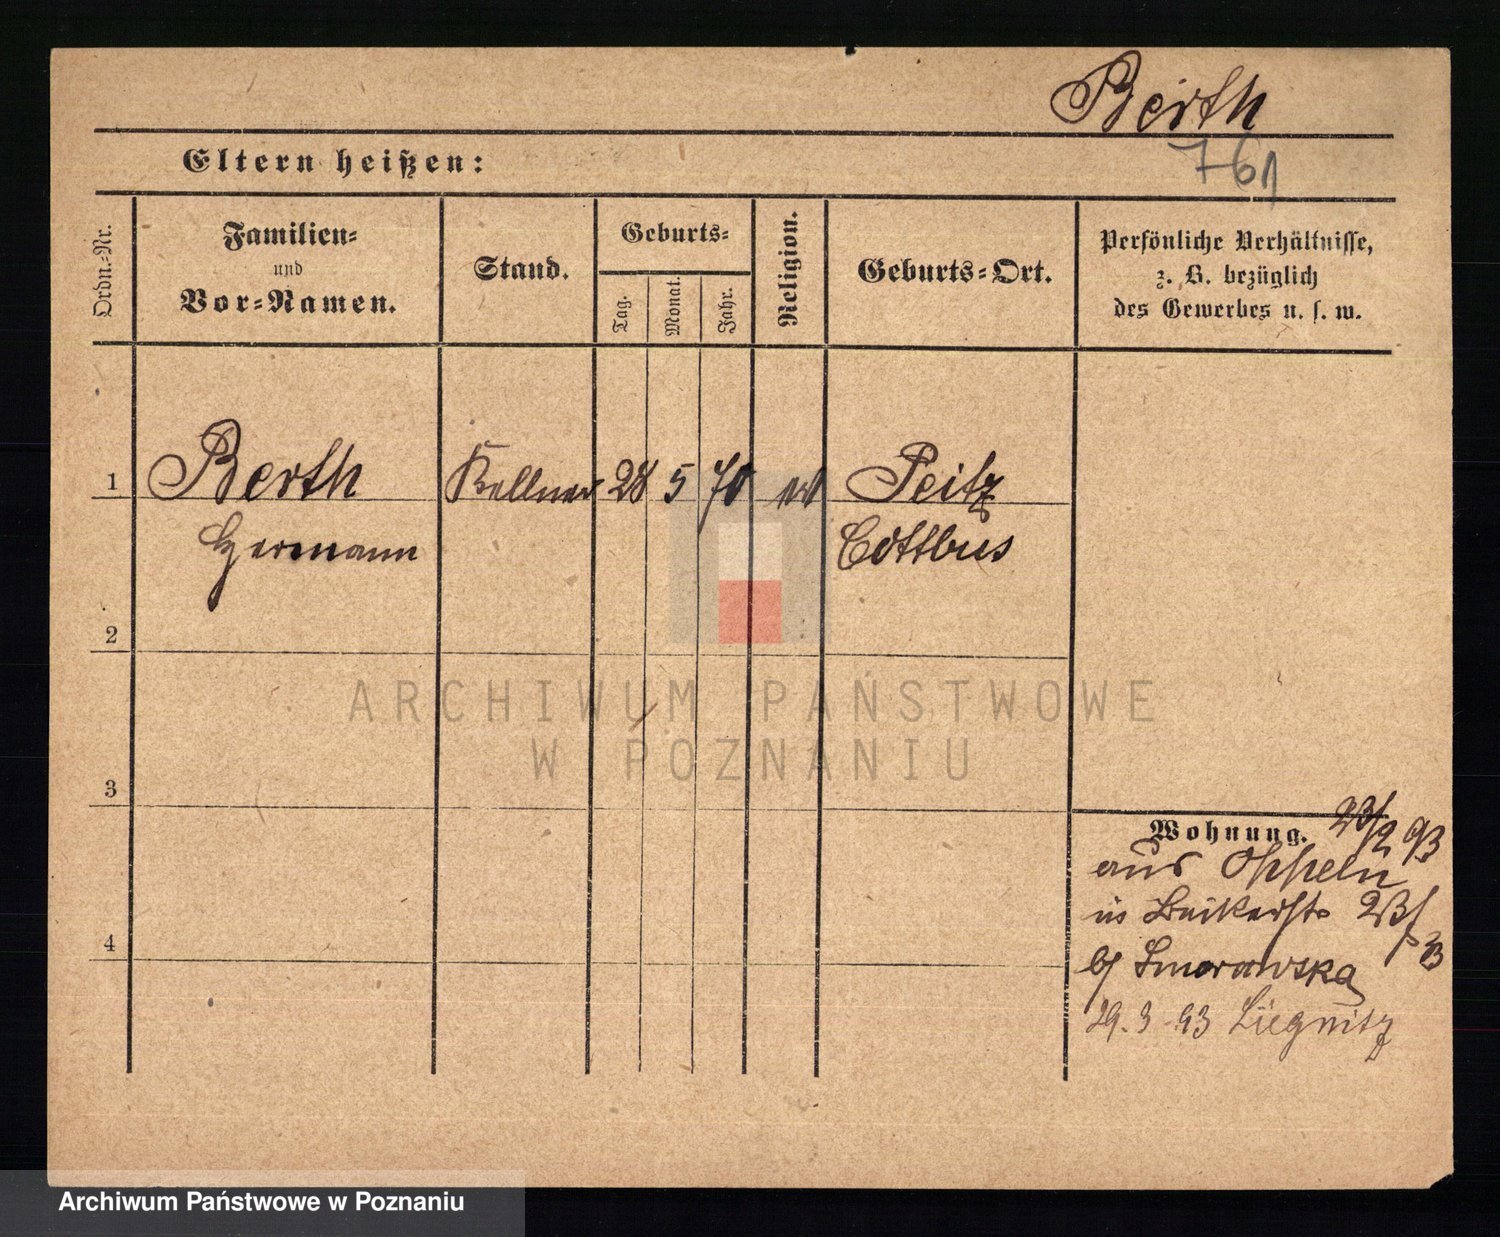 Berth
761
Eltern heißen:
Ordn.-Nr.
Familien-
und
Vor-Namen.
Stand.
Geburts-
Tag.
Monat.
Jahr.
Religion.
Geburts-Ort.
Persönliche Verhältnisse,
z. B. bezüglich
des Gewerbes u. s. w.
1
Berth
Kellner
28
5
70
Peitz
Hermann
Cottbus
2
ARCHIWUM PAŃSTWOWE
W POZNANIU
3
Wohnung. 23/2 93
aus Oppeln
in
4
b/ Smorawska
29. 3 93 Liegnitz
Archiwum Państwowe w Poznaniu